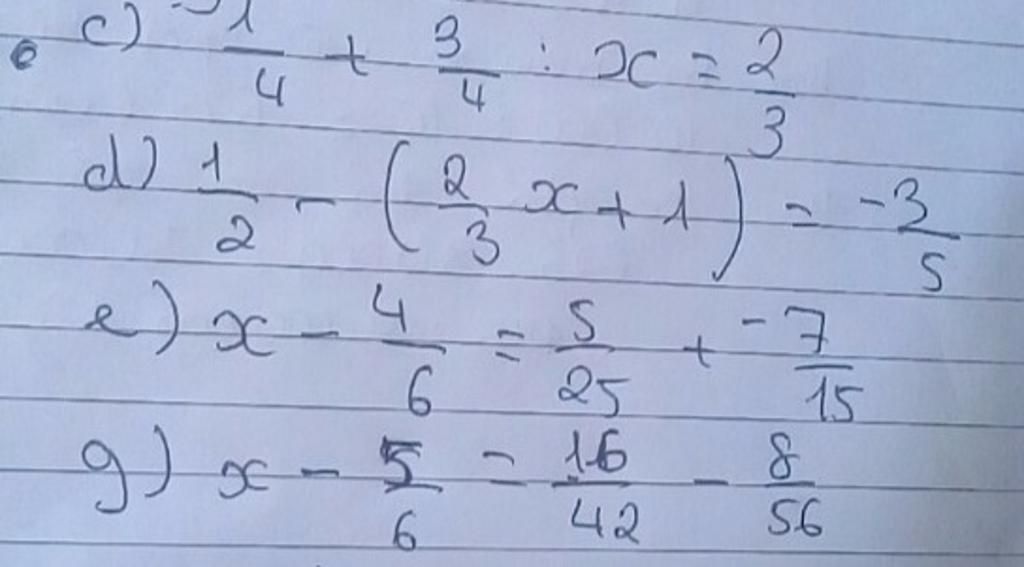 c) 1/4 + 3/4 : x = 2/3
d) 1/2 - (2/3 x + 1) = -3/5
e) x - 4/6 = 5/25 + -7/15
g) x - 5/6 = 16/42 - 8/56